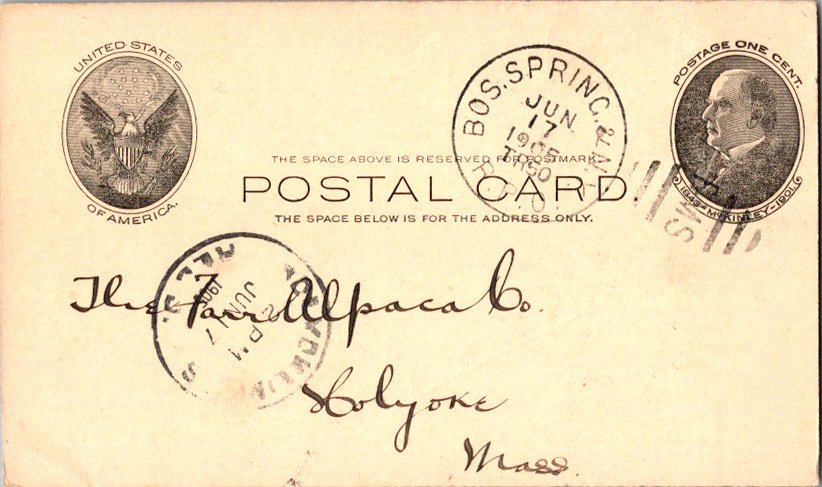 UNITED STATES
OF AMERICA.
POSTAGE ONE CENT.
1843-MCKINLEY-1901.
BOS. SPRING. & N.Y.
JUN
17
TR50
R.P.O.
RMS
THE SPACE ABOVE IS RESERVED FOR POSTMARK.
POSTAL CARD.
THE SPACE BELOW IS FOR THE ADDRESS ONLY.
The Farr Alpaca Co.
Holyoke
Mass.
REC'D.
2 PM
JUN 17